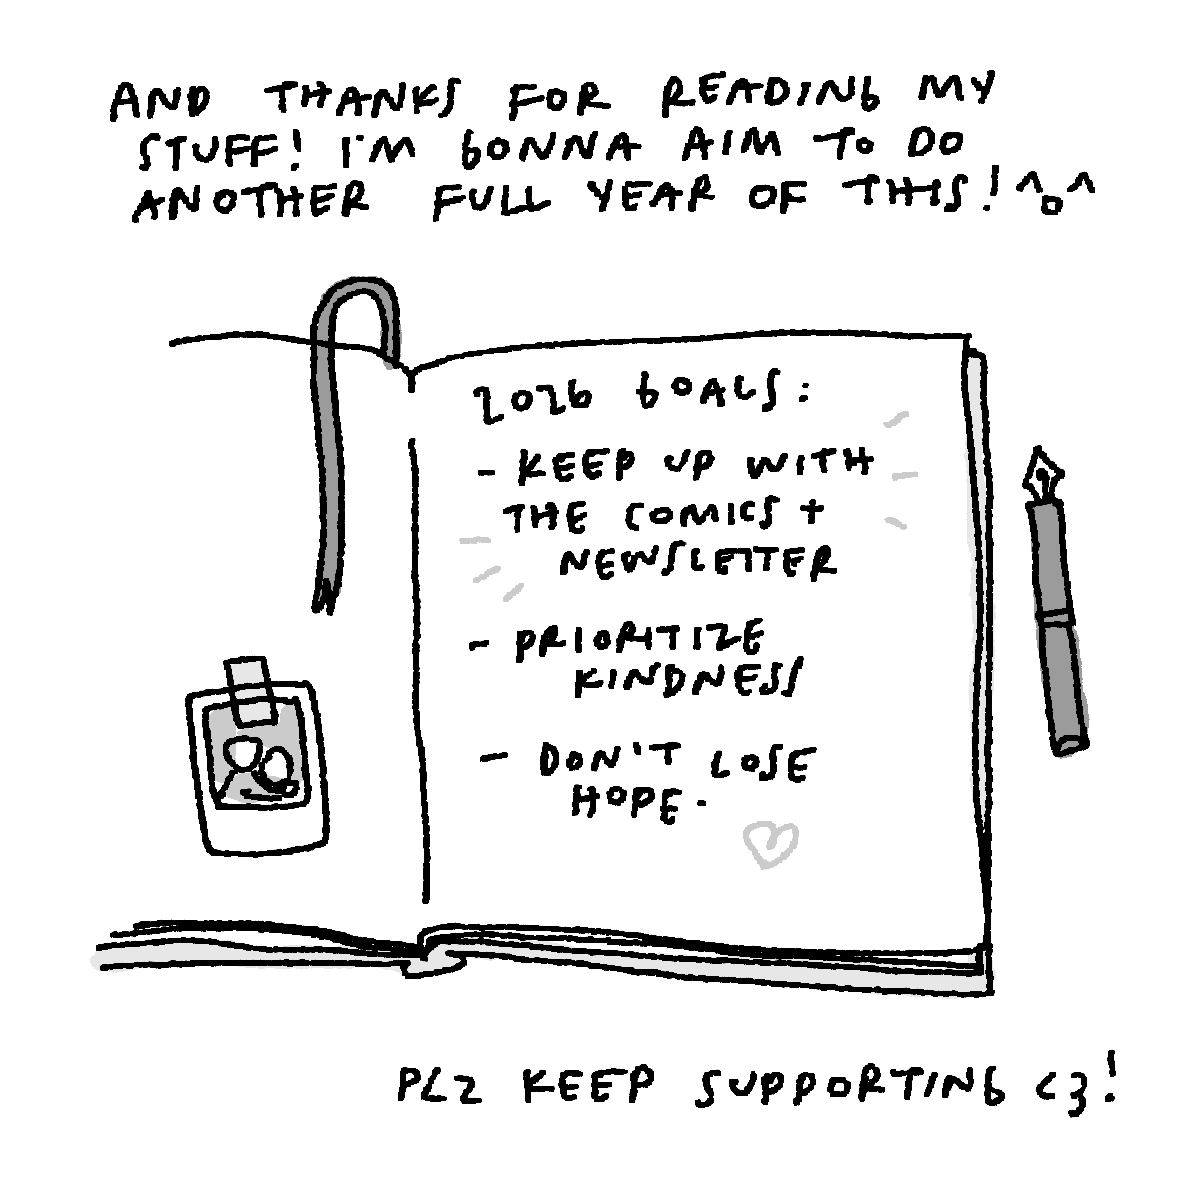 AND THANKS FOR READING MY
STUFF! I'M GONNA AIM TO DO
ANOTHER FULL YEAR OF THIS! ^o^
2026 GOALS:
- KEEP UP WITH
THE COMICS +
NEWSLETTER
- PRIORITIZE
KINDNESS
- DON'T LOSE
HOPE.
PLZ KEEP SUPPORTING <3!